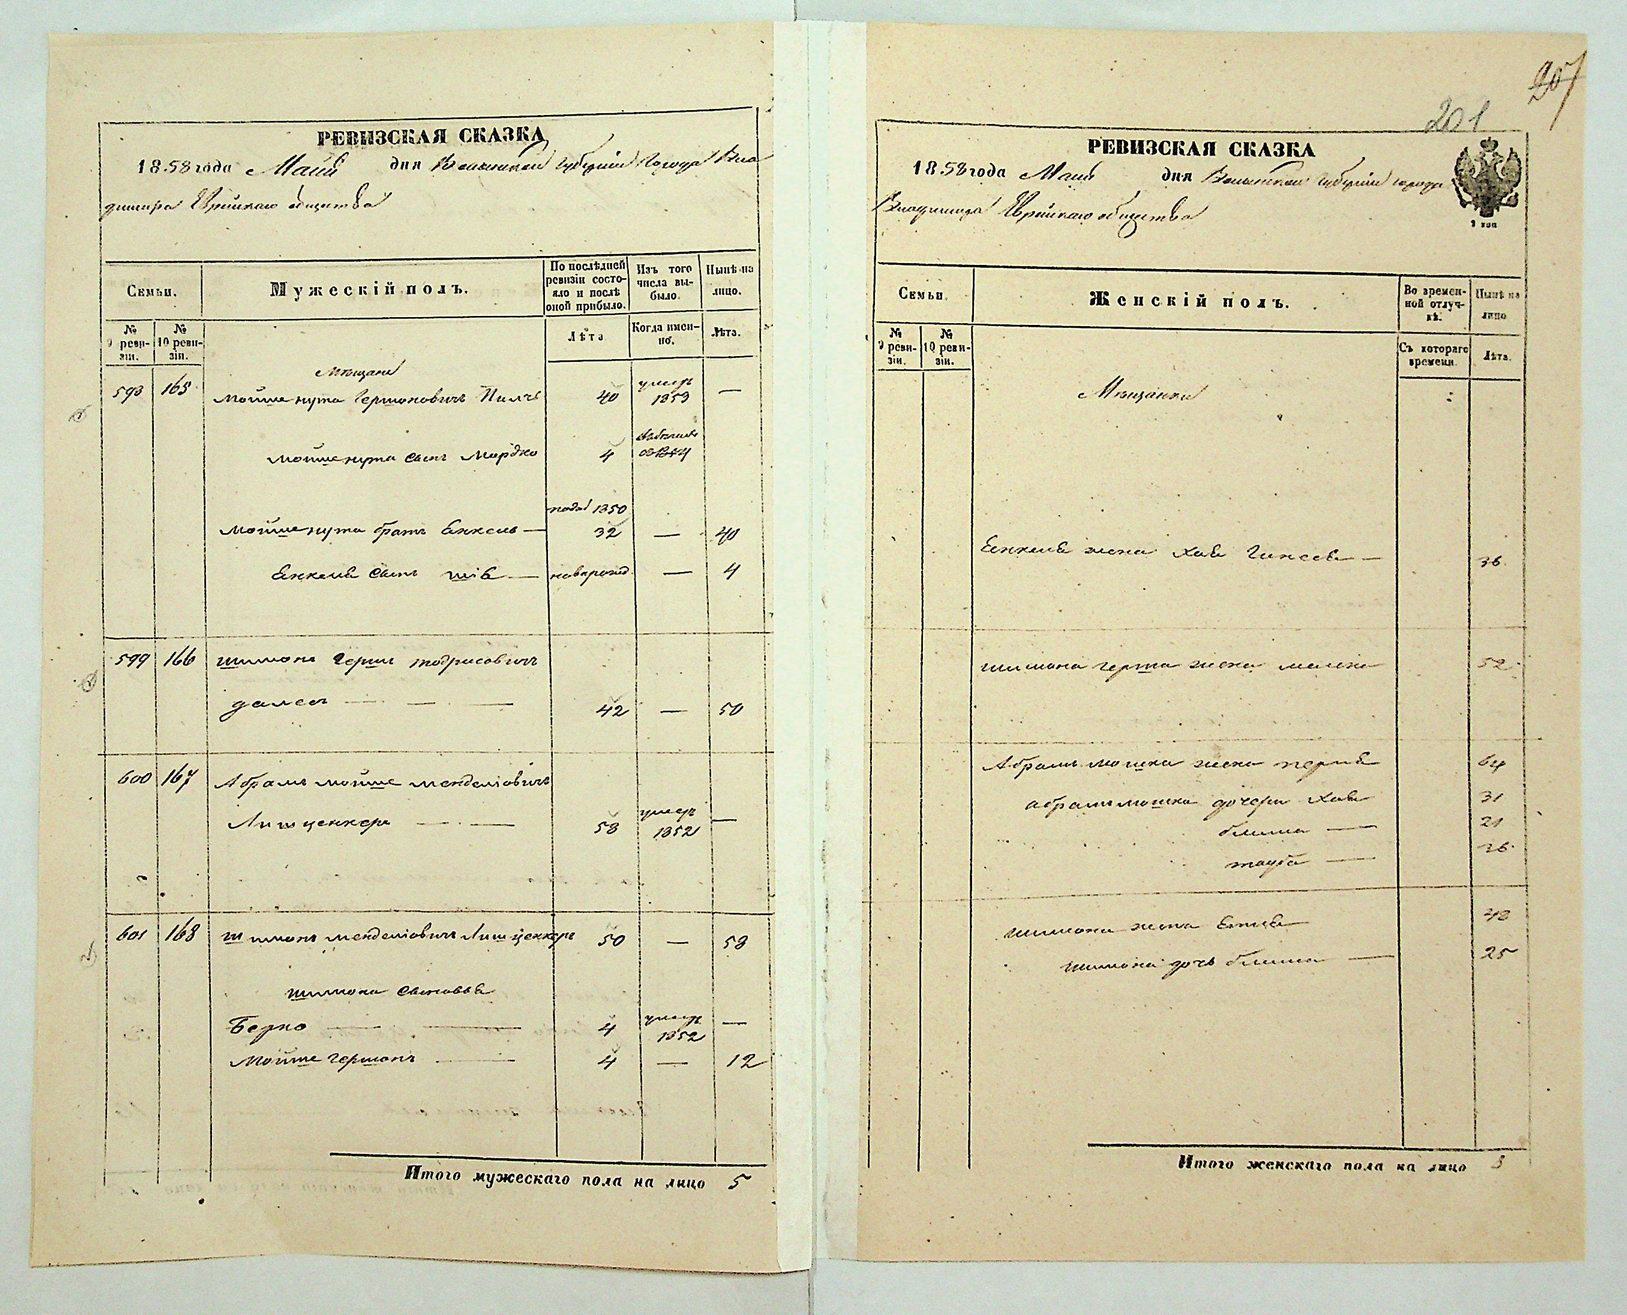 РЕВИЗСКАЯ СКАЗКА
1858 года Маия дня Волынской Губернiи Города Вла
димира Еврейскаго общества
Семьи.
Мужескiй полъ.
По послѣдней ревизiи состо-
яло и послѣ
оной прибыло.
Изъ того
числа вы-
было.
Нынѣ на
лицо.
№
9 реви-
зiи.
№
10 реви-
зiи.
Лѣта
Когда имен-
но.
Лѣта.
Мѣщане
593 165 Мойше нута Гершоновичъ 40 умеръ 1853 —
Мойше нута сынъ Мордко 4
Мойше нута братъ Енкель — 32 — 40
Енкеля сынъ — новорожд. — 4
599 166 Шимонъ Гершъ Тодрисовичъ
42 — 50
600 167 Абрамъ Мойше Менделiовичъ
Лишценкеръ — — 58 умеръ 1852 —
601 168 Шимонъ Менделiовичъ Лишценкеръ 50 — 58
Шимона сыновья
Берко — — 4 умеръ 1852 —
Мойше Гершонъ — 4 — 12
Итого мужескаго пола на лицо 5
201
РЕВИЗСКАЯ СКАЗКА
1858 года Маия дня Волынской Губернiи города
Владимира Еврейскаго общества
Семьи.
Женскiй полъ.
Во времен-
ной отлуч-
кѣ.
Нынѣ на
лицо
№
9 реви-
зiи.
№
10 реви-
зiи.
Съ котораго
времени.
Лѣта.
Мѣщанки
Енкеля жена Хая — 36
Шимона Герша жена 52
Абрама Мошка жена Перля 64
Абрама Мошка дочери Хая 31
Блима — 21
Тауба —
Шимона жена 48
Шимона дочь Блима — 25
Итого женскаго пола на лицо